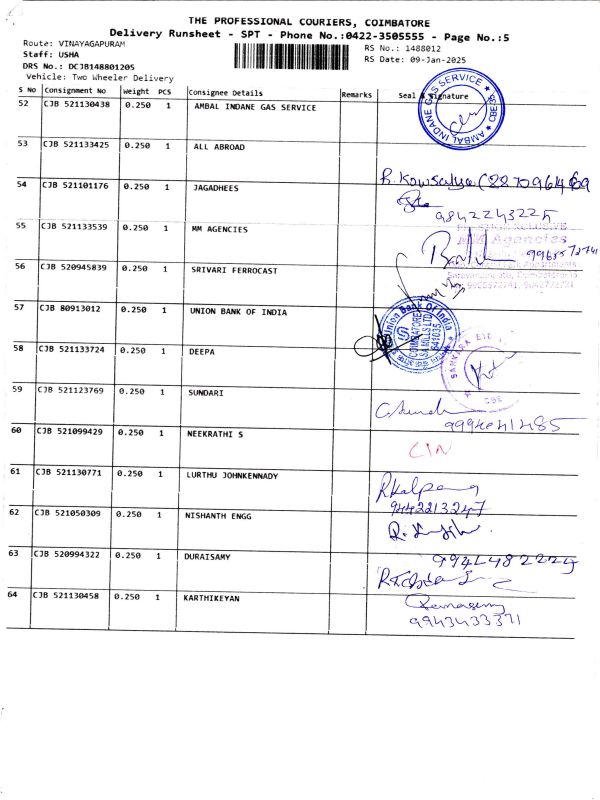 THE PROFESSIONAL COURIERS, COIMBATORE
Delivery Runsheet - SPT - Phone No.:0422-3505555 - Page No.:5
Route: VINAYAGAPURAM
RS No.: 1488012
Staff: USHA
RS Date: 09-Jan-2025
DRS No.: DCJB148801205
Vehicle: Two Wheeler Delivery
S No Consignment No Weight PCS Consignee Details Remarks Seal & Signature
52 CJB 521130438 0.250 1 AMBAL INDANE GAS SERVICE
AMBAL INDANE GAS SERVICE ★ CBE-35 ★
53 CJB 521133425 0.250 1 ALL ABROAD
54 CJB 521101176 0.250 1 JAGADHEES
R. Kowsalya
9842243225
55 CJB 521133539 0.250 1 MM AGENCIES
MM Agencies
56 CJB 520945839 0.250 1 SRIVARI FERROCAST
57 CJB 80913012 0.250 1 UNION BANK OF INDIA
Union Bank Of India
COIMBATORE
641035
58 CJB 521133724 0.250 1 DEEPA
SANKARA EYE
CBE
59 CJB 521123769 0.250 1 SUNDARI
9994041485
60 CJB 521099429 0.250 1 NEEKRATHI S
CIN
61 CJB 521130771 0.250 1 LURTHU JOHNKENNADY
R Kalpana
9442213247
62 CJB 521050309 0.250 1 NISHANTH ENGG
63 CJB 520994322 0.250 1 DURAISAMY
64 CJB 521130458 0.250 1 KARTHIKEYAN
Ramasamy
9943433371